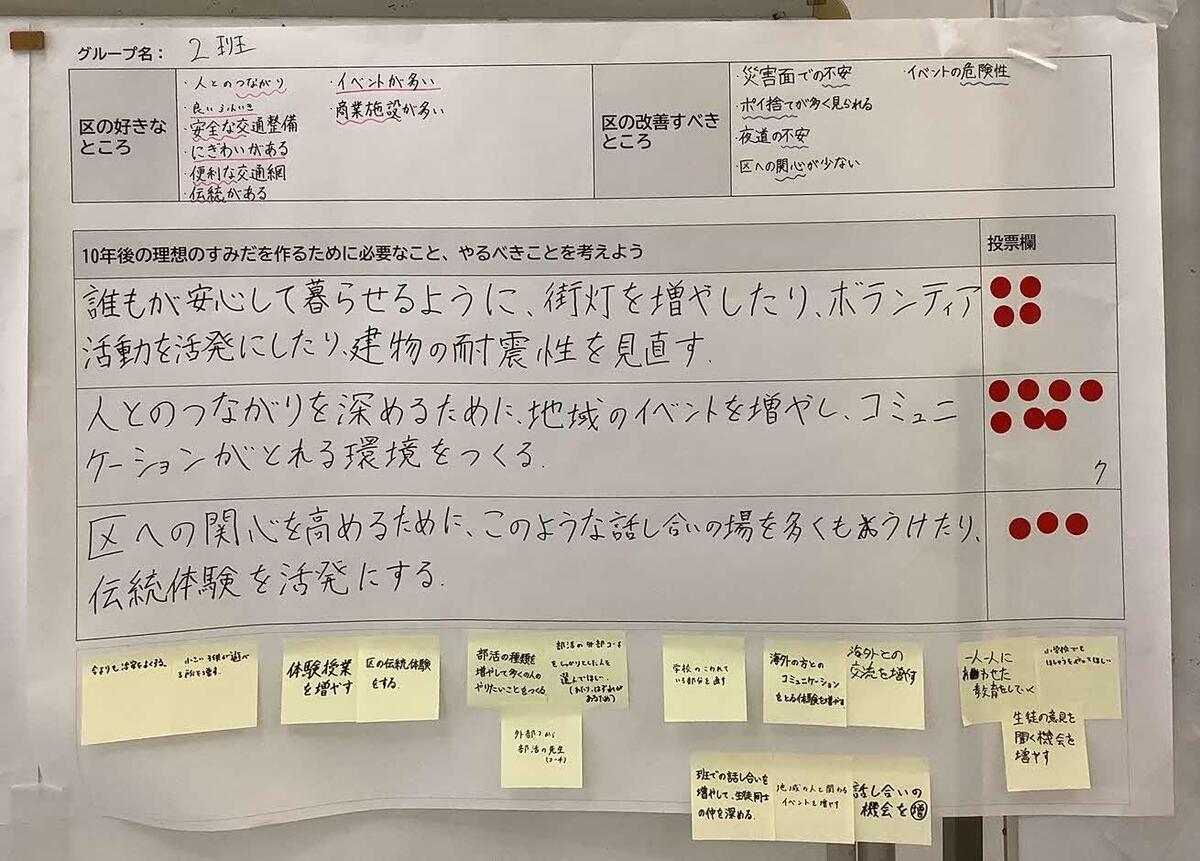 グループ名： 2班
区の好きな
ところ
・人とのつながり
・良いふんいき
・安全な交通整備
・にぎわいがある
・便利な交通網
・伝統がある
・イベントが多い
・商業施設が多い
区の改善すべき
ところ
・災害面での不安
・ポイ捨てが多く見られる
・夜道の不安
・区への関心が少ない
・イベントの危険性
10年後の理想のすみだを作るために必要なこと、やるべきことを考えよう
投票欄
誰もが安心して暮らせるように、街灯を増やしたり、ボランティア
活動を活発にしたり、建物の耐震性を見直す.
人とのつながりを深めるために、地域のイベントを増やし、コミュニ
ケーションがとれる環境をつくる.
区への関心を高めるために、このような話し合いの場を多くもうけたり、
伝統体験を活発にする.
今よりも治安をよくする
小さい子供が遊べ
る所を増す.
体験授業
を増やす
区の伝統体験
をする.
部活の種類を
増やして多くの人の
やりたいことをつくる.
部活の外部コーチ
をしっかりとした人を
選んでほしい.
外部から
部活の先生
(コーチ)
学校のこわれて
いる部分を直す
海外の方との
コミュニケーション
をとる体験を増やす.
海外との
交流を増やす
一人一人に
合わせた
教育をしていく
小学校でも
生徒の意見を
聞く機会を
増やす
班での話し合いを
増やして、生徒同士
の仲を深める.
地域の人と関わる
イベントを増やす
話し合いの
機会を増